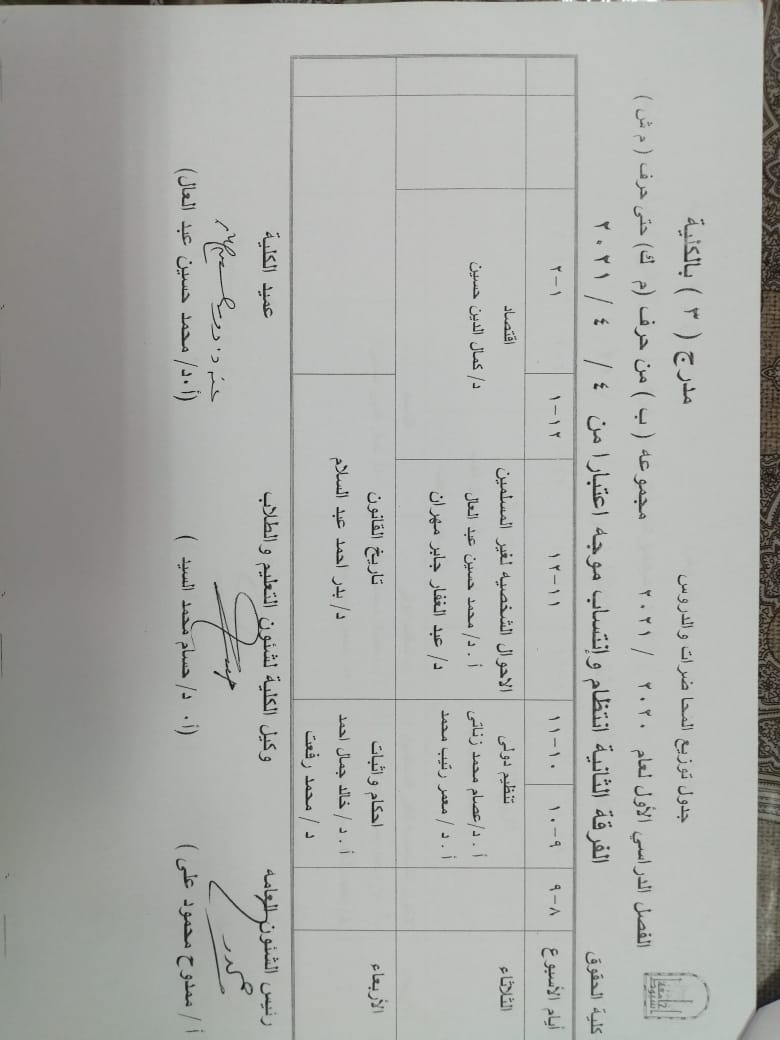 جامعة أسيوط
كلية الحقوق
جدول توزيع المحاضرات والدروس
مدرج ( ٣ ) بالكلية
الفصل الدراسي الأول لعام ٢٠٢٠ / ٢٠٢١ مجموعه ( ب ) من حرف (م ك) حتى حرف ( م ش )
الفرقة الثانية انتظام وإنتساب موجه اعتبارا من ٤ / ٤ / ٢٠٢١
أيام الأسبوع ٨-٩ ٩-١٠ ١٠-١١ ١١-١٢ ١٢-١ ١-٢
الثلاثاء
تنظيم دولى
أ . د/عصام محمد زناتى
أ . د/ معمر رتيب محمد
الاحوال الشخصيه لغير المسلمين
أ . د/ محمد حسين عبد العال
د/ عبد الغفار جابر مهران
اقتصاد
د/ كمال الدين حسين
الأربعاء
احكام واثبات
أ . د / خالد جمال احمد
د / محمد رفعت
تاريخ القانون
د/ بدر احمد عبد السلام
رئيس الشئون العامه
أ / ممدوح محمود على )
وكيل الكلية لشئون التعليم والطلاب
(أ . د/ حسام محمد السيد )
عميد الكلية
(أ.د/ محمد حسين عبد العال)